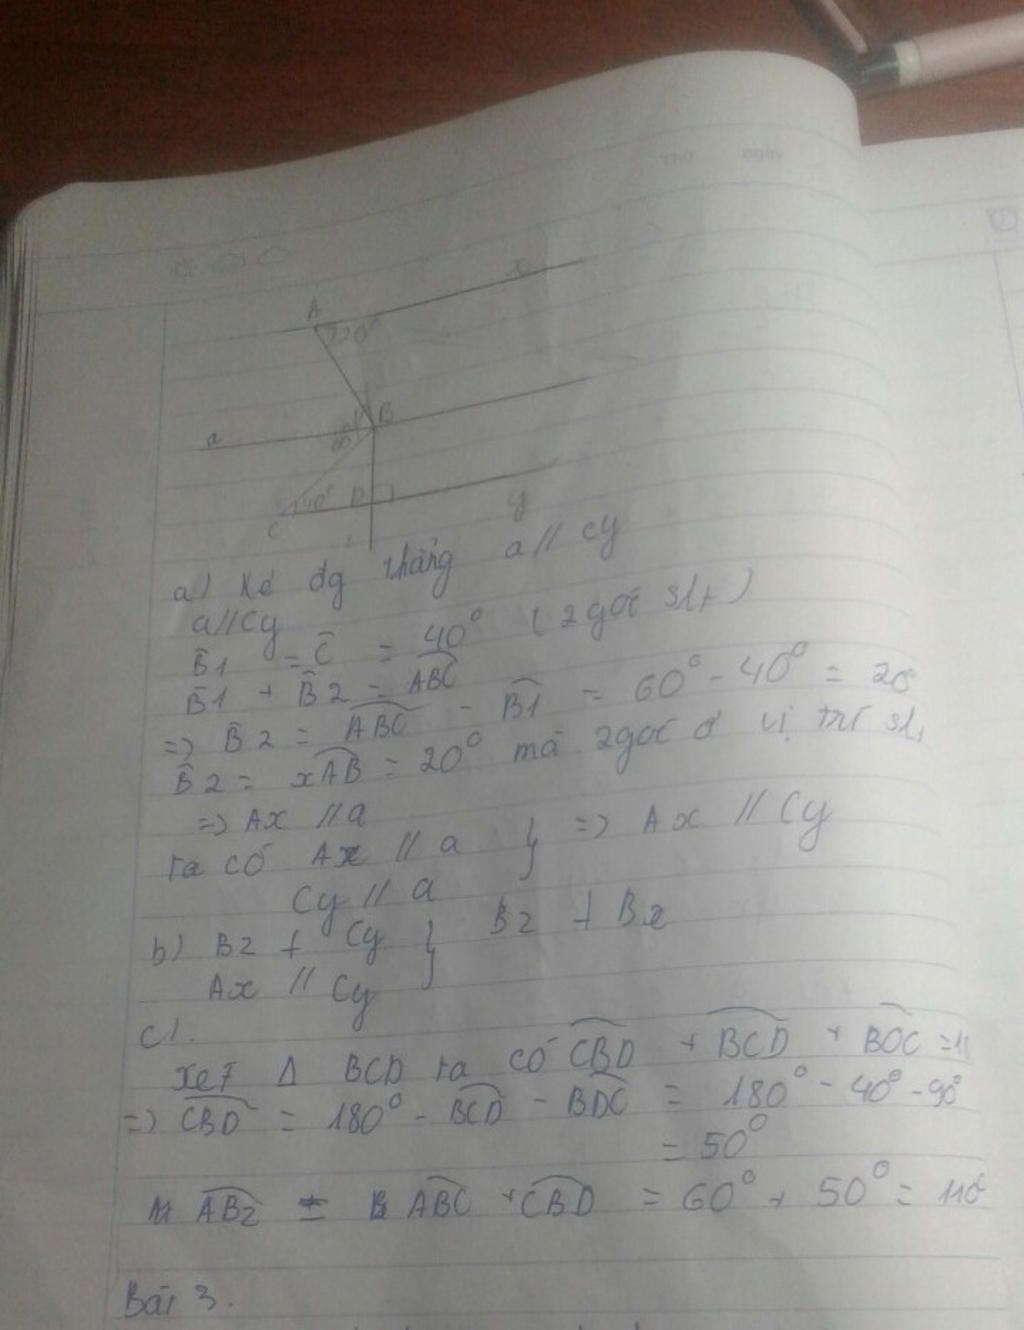 Thứ ngày
x
A
20°
B
a
60°
40°
D
C
y
a) Kẻ đg thẳng a // Cy
a//Cy
B̂1 = Ĉ = 40° (2 góc slt)
B̂1 + B̂2 = ABC
=> B̂2 = ABC - B̂1 = 60° - 40° = 20°
B̂2 = xAB = 20° mà 2góc ở vị trí sl
=> Ax // a
ta có Ax // a } => Ax // Cy
Cy // a
b) Bz ⊥ Cy } Bz ⊥ Bx
Ax // Cy
c).
xét Δ BCD ta có CBD + BCD + BDC = 1
=> CBD = 180° - BCD - BDC = 180° - 40° - 90°
= 50°
ABz = ABC + CBD = 60° + 50° = 110°
Bài 3.